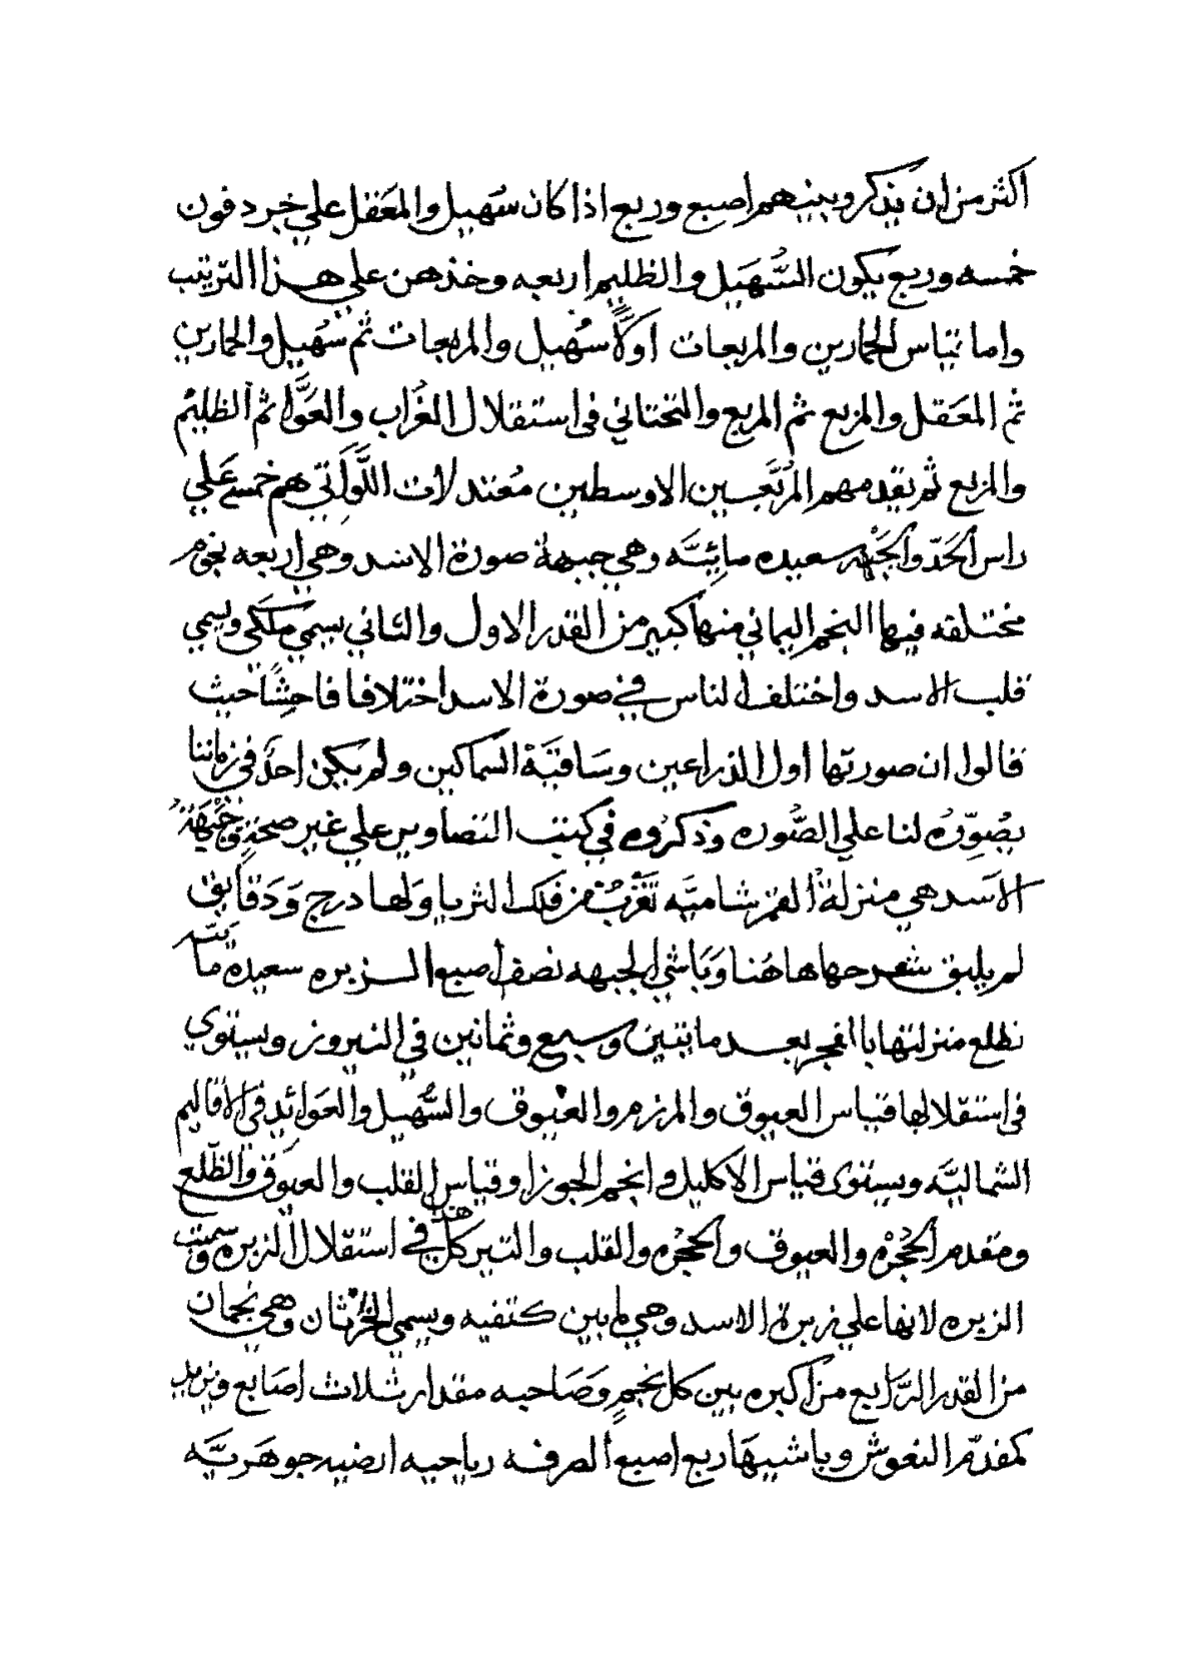 اكثر من ان يذكر وبينهم اصبع وربع اذا كان سُهيل والمعَقل علي خرد فون
خمسه وربع يكون السُّهَيل والظليم اربعه وخذهن علي هذا الترتيب
واما قياس الحمارين والمربعات اوَّلاً سُهيل والمربعات ثم سُهيل والحمارين
ثم المعَقل والمربع ثم المربع والتحتاني في استقلال الغُراب والعَوَّا ثم الظليم
والمربع ثم يقدمهم المُربَّعين الاوسطين مُعتدلات اللَّوَاتي هم خمسَ عَلي
راس الحَدّ والجَبْهه سعيده مائيَّه وهي جبهة صورة الاسد وهي اربعه نجوم
مختلفه فيها النجم اليماني منها كبير من القدر الاول والثاني يسمي مَلكَي ويسمي
قلب الاسد واختلف الناس في صورة الاسد اختلافا فاحِشًا حيث
قالوا ان صورتها اول الذراعين وسَاقيَة السماكين ولم يكن احدٌ في زماننا
يصُوِّرُه لنا علي الصُّوره وذكرُوه في كتب التصاوير علي غير صحةٍ وجَبْهَةُ
الاَسد هي منزلة القمر شاميَّه تَغْرُبُ من فلك الثريا ولَها درج وَدَقايق
لم يليق شرحها هاهُنا وَبَاشي الجبهه نصف اصبع الزبره سعيده مائيَّه
تطلع منزلتها با الفجر بعد مايتين وسبع وثمانين في النيروز ويستوي
في استقلالها قياس العيوق والمرزم والعيوق والسُّهَيل والعَوائِد في الاقاليم
الشماليَّه ويستوي قياس الاكليل وانجم الجوزا وقياس القلب والعيوق والظّلع
ومقدم الحُجُرْه والعيوق والحجرْه والقلب والتير كل هذا في استقلال الزبره وسميت
الزبره لانها علي زبرة الاسد وهي لم بين كتفيه ويسمي الخُرْتَان وهي نجمان
من القدر الرَّابع من اكبره بين كل نجمٍ وصَاحبه مقدار ثلاث اصَابع ونزيل
كمقدّم النعوش وباشيهَا ربع اصبع الصرفه رياحيه ارضيه جوهَريَّه